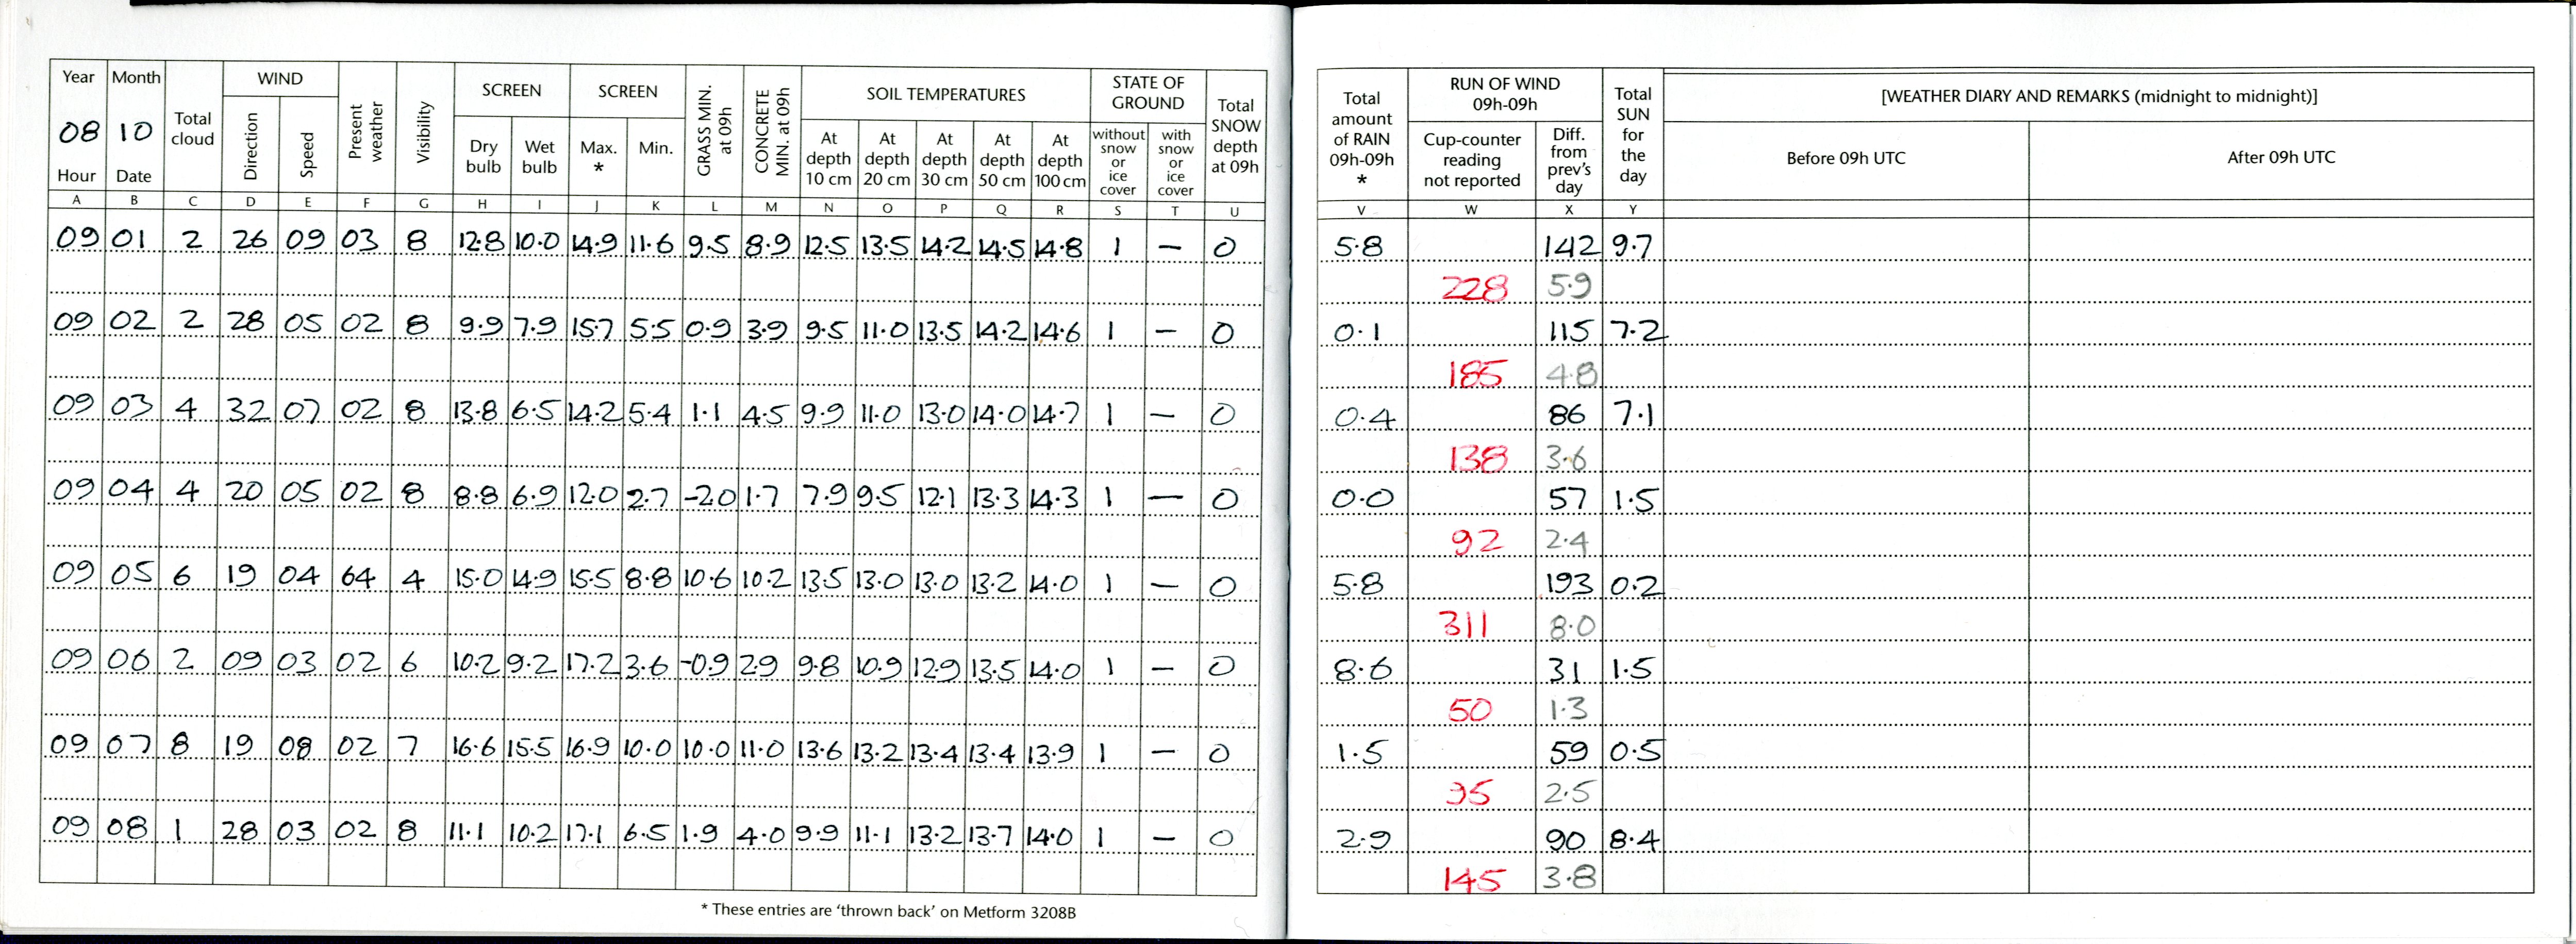 Year Month Total cloud WIND Present weather Visibility SCREEN SCREEN GRASS MIN. at 09h CONCRETE MIN. at 09h SOIL TEMPERATURES STATE OF GROUND Total SNOW depth at 09h
08 10 Direction Speed Dry bulb Wet bulb Max. * Min. At depth 10 cm At depth 20 cm At depth 30 cm At depth 50 cm At depth 100 cm without snow or ice cover with snow or ice cover
Hour Date
A B C D E F G H I J K L M N O P Q R S T U
09 01 2 26 09 03 8 12.8 10.0 14.9 11.6 9.5 8.9 12.5 13.5 14.2 14.5 14.8 1 — 0
09 02 2 28 05 02 8 9.9 7.9 15.7 5.5 0.9 3.9 9.5 11.0 13.5 14.2 14.6 1 — 0
09 03 4 32 07 02 8 13.8 6.5 14.2 5.4 1.1 4.5 9.9 11.0 13.0 14.0 14.7 1 — 0
09 04 4 20 05 02 8 8.8 6.9 12.0 2.7 -2.0 1.7 7.9 9.5 12.1 13.3 14.3 1 — 0
09 05 6 19 04 64 4 15.0 14.9 15.5 8.8 10.6 10.2 13.5 13.0 13.0 13.2 14.0 1 — 0
09 06 2 09 03 02 6 10.2 9.2 17.2 3.6 -0.9 2.9 9.8 10.9 12.9 13.5 14.0 1 — 0
09 07 8 19 08 02 7 16.6 15.5 16.9 10.0 10.0 11.0 13.6 13.2 13.4 13.4 13.9 1 — 0
09 08 1 28 03 02 8 11.1 10.2 17.1 6.5 1.9 4.0 9.9 11.1 13.2 13.7 14.0 1 — 0
* These entries are 'thrown back' on Metform 3208B
Total amount of RAIN 09h-09h * RUN OF WIND 09h-09h Total SUN for the day [WEATHER DIARY AND REMARKS (midnight to midnight)]
Cup-counter reading not reported Diff. from prev's day Before 09h UTC After 09h UTC
V W X Y
5.8 142 9.7
228 5.9
0.1 115 7.2
185 4.8
0.4 86 7.1
138 3.6
0.0 57 1.5
92 2.4
5.8 193 0.2
311 8.0
8.6 31 1.5
50 1.3
1.5 59 0.5
95 2.5
2.9 90 8.4
145 3.8